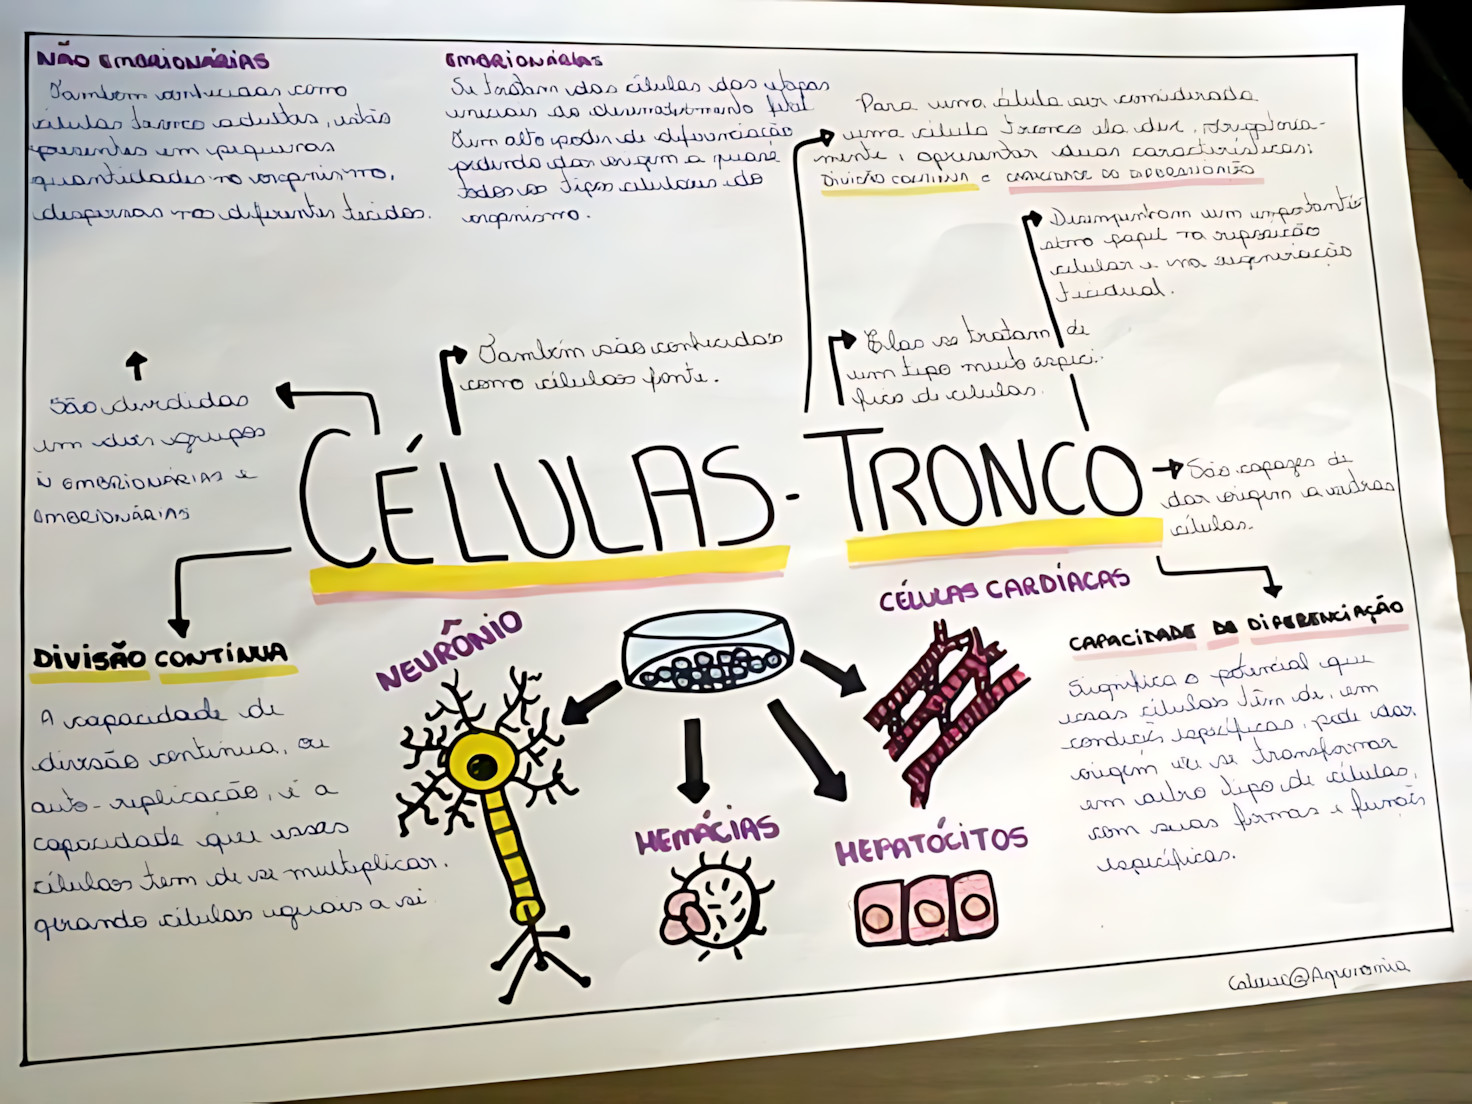 NÃO EMBRIONÁRIAS
Também conhecidas como
células tronco adultas, estão
presentes em pequenas
quantidades no organismo,
dispersas nos diferentes tecidos.
EMBRIONÁRIAS
Se tratam das células das etapas
iniciais do desenvolvimento fetal
tem alto poder de diferenciação
podendo dar origem a quase
todos os tipos celulares do
organismo.
Para uma célula ser considerada
uma célula tronco ela deve, obrigatoria-
mente, apresentar duas características:
DIVISÃO CONTÍNUA e CAPACIDADE DE DIFERENCIAÇÃO
Desempenham um importantís
simo papel na reposição
celular e na regeneração
tecidual.
Também são conhecidas
como células fonte.
Elas se tratam de
um tipo muito especí-
fico de células.
São divididas
em dois grupos
Ñ EMBRIONÁRIAS e
EMBRIONÁRIAS
CÉLULAS-TRONCO
São capazes de
dar origem a outras
células.
DIVISÃO CONTÍNUA
A capacidade de
divisão contínua, ou
auto-replicação, é a
capacidade que essas
células tem de se multiplicar.
gerando células iguais a si
NEURÔNIO
CÉLULAS CARDÍACAS
HEMÁCIAS
HEPATÓCITOS
CAPACIDADE DE DIFERENCIAÇÃO
Significa o potencial que
essas células têm de, em
condiçẽs específicas, pode dar
origem ou se transformar
em outro tipo de células,
com suas formas e funções
específicas.
@Agronomia